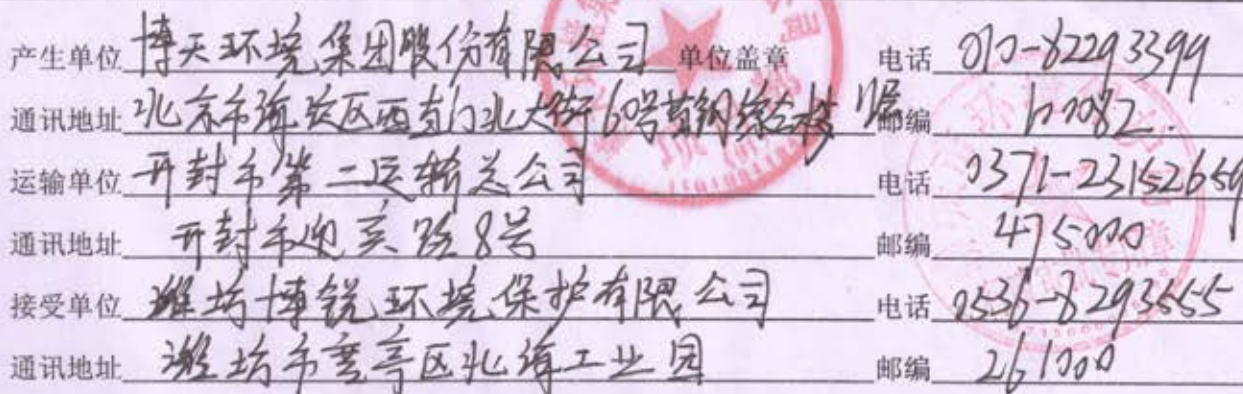 产生单位 博天环境集团股份有限公司 单位盖章 电话 010-82293399
通讯地址 北京市海淀区西直门北大街60号首钢综合楼 邮编 100082.
运输单位 开封市第二运输总公司 电话 0371-23152659
通讯地址 开封市迎宾路8号 邮编 475000
接受单位 潍坊博锐环境保护有限公司 电话 0536-8293555
通讯地址 潍坊市寒亭区北海工业园 邮编 261000